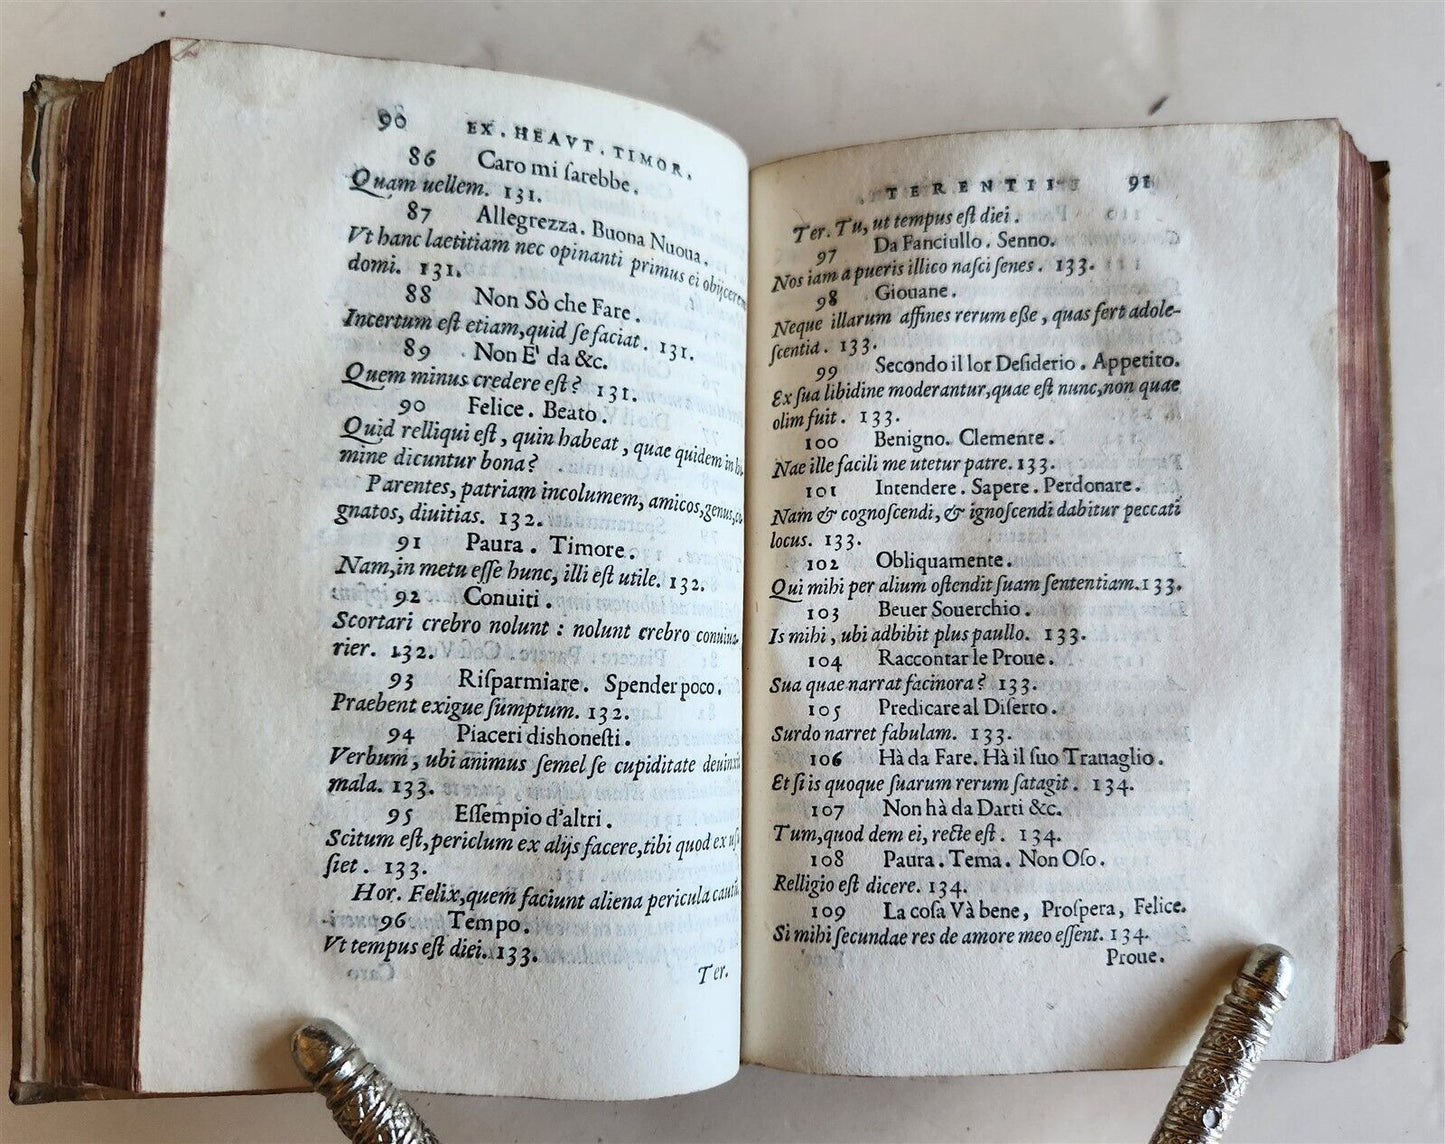 90 EX. HEAVT. TIMOR.
86 Caro mi ſarebbe.
Quam uellem. 131.
87 Allegrezza. Buona Nuoua.
Vt hanc laetitiam nec opinanti primus ei obijcerem
domi. 131.
88 Non Sò che Fare.
Incertum eſt etiam, quid ſe faciat. 131.
89 Non E' da &c.
Quem minus credere eſt? 131.
90 Felice. Beato.
Quid relliqui eſt, quin habeat, quae quidem in
mine dicuntur bona?
Parentes, patriam incolumem, amicos, genus, co
gnatos, diuitias. 132.
91 Paura. Timore.
Nam, in metu eſſe hunc, illi eſt utile. 132.
92 Conuiti.
Scortari crebro nolunt: nolunt crebro conuiua
rier. 132.
93 Riſparmiare. Spender poco.
Praebent exigue ſumptum. 132.
94 Piaceri dishoneſti.
Verbum, ubi animus ſemel ſe cupiditate deuinxit
mala. 133.
95 Eſſempio d'altri.
Scitum eſt, periclum ex alijs facere, tibi quod ex uſu
ſiet. 133.
Hor. Felix, quem faciunt aliena pericula cautũ.
96 Tempo.
Vt tempus eſt diei. 133.
Ter.
TERENTII 91
Ter. Tu, ut tempus eſt diei.
97 Da Fanciullo. Senno.
Nos iam a pueris illico naſci ſenes. 133.
98 Giouane.
Neque illarum affines rerum eſſe, quas fert adole-
ſcentia. 133.
99 Secondo il lor Deſiderio. Appetito.
Ex ſua libidine moderantur, quae eſt nunc, non quae
olim fuit. 133.
100 Benigno. Clemente.
Nae ille facili me utetur patre. 133.
101 Intendere. Sapere. Perdonare.
Nam & cognoſcendi, & ignoſcendi dabitur peccati
locus. 133.
102 Obliquamente.
Qui mihi per alium oſtendit ſuam ſententiam. 133.
103 Beuer Souerchio.
Is mihi, ubi adbibit plus paullo. 133.
104 Raccontar le Proue.
Sua quae narrat facinora? 133.
105 Predicare al Diſerto.
Surdo narret fabulam. 133.
106 Hà da Fare. Hà il ſuo Trauaglio.
Et ſi is quoque ſuarum rerum ſatagit. 134.
107 Non hà da Darti &c.
Tum, quod dem ei, recte eſt. 134.
108 Paura. Tema. Non Oſo.
Relligio eſt dicere. 134.
109 La coſa Và bene, Proſpera, Felice.
Si mihi ſecundae res de amore meo eſſent. 134.
Proue.